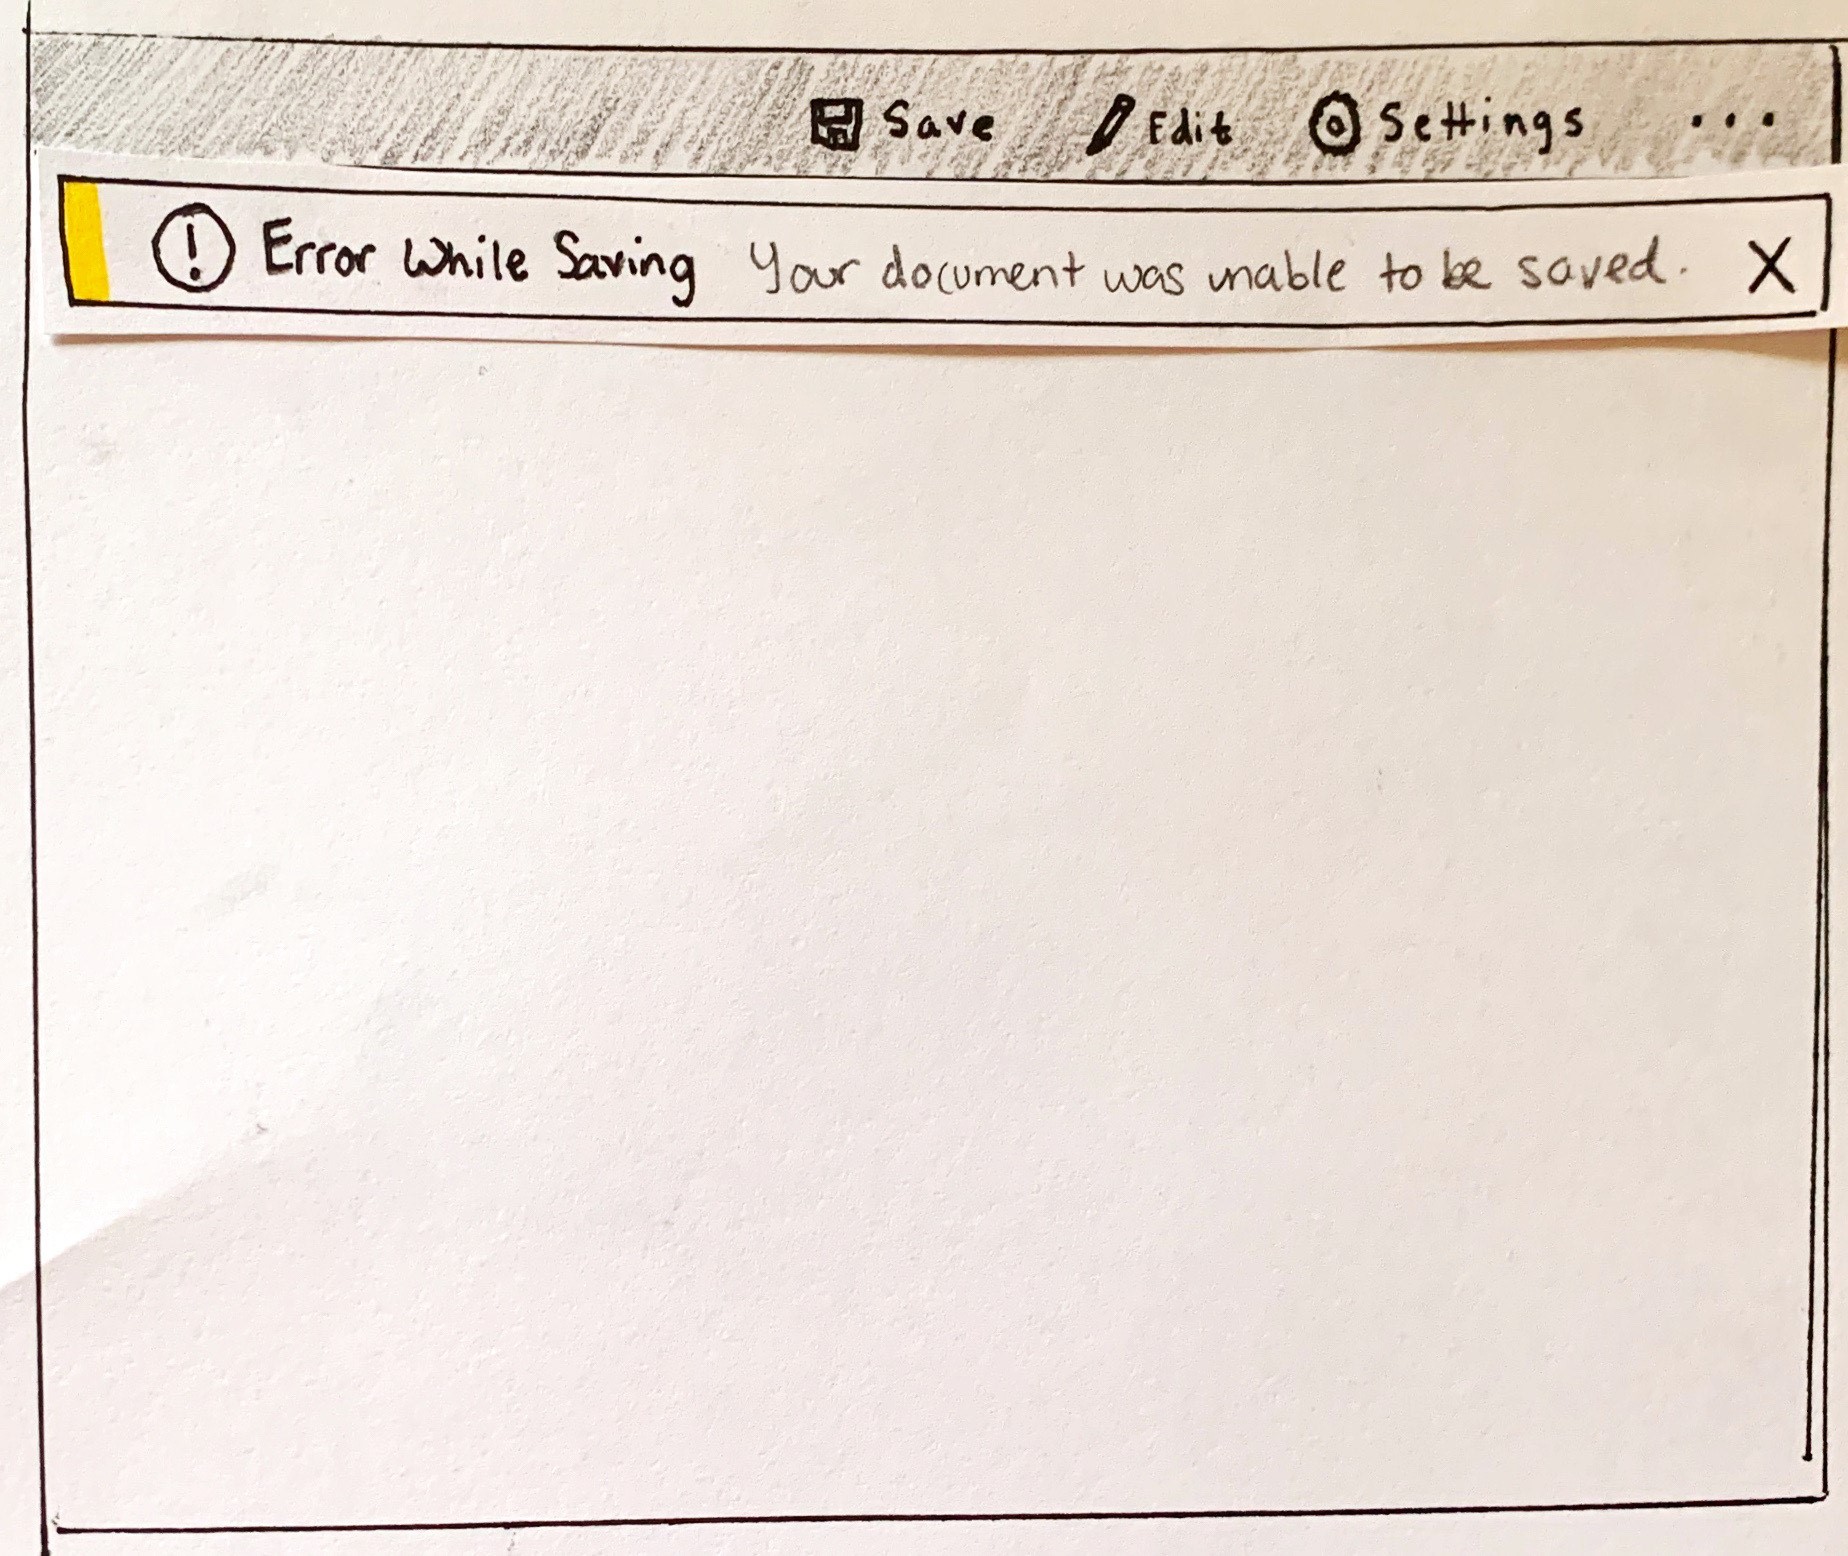 Save Edit Settings ...
! Error While Saving Your document was unable to be saved. X